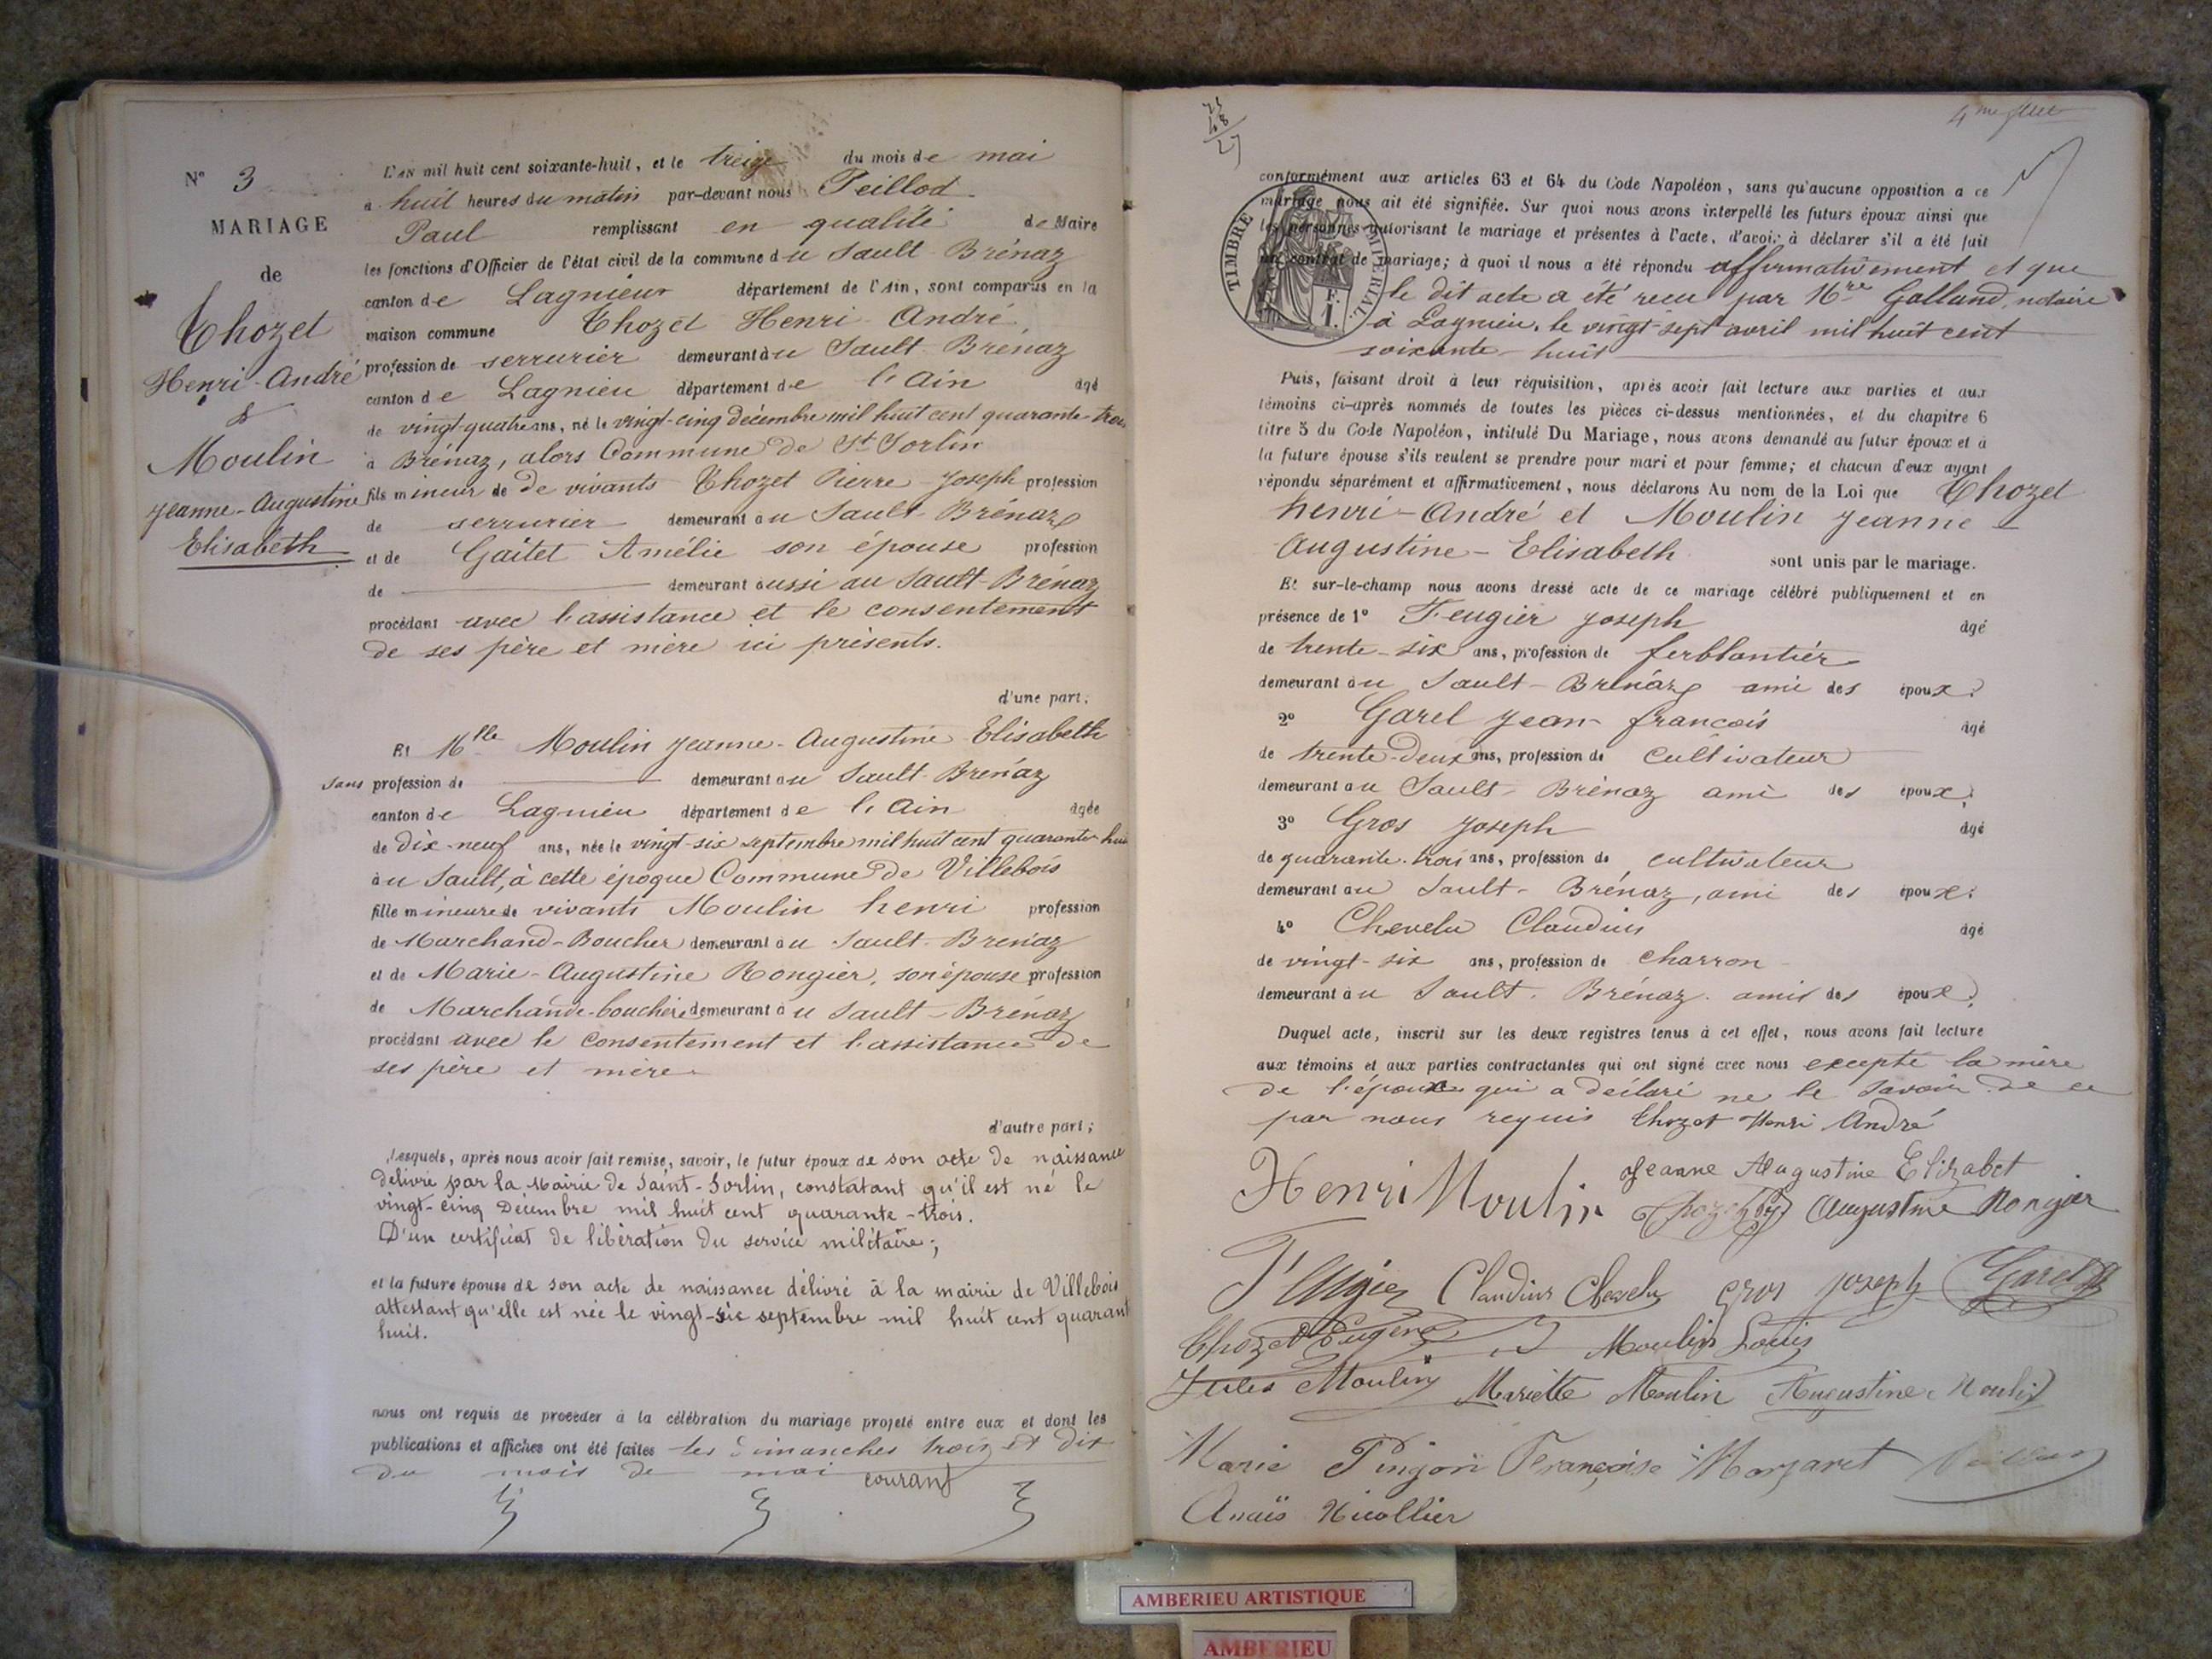 N° 3
MARIAGE
de
Thozet
Henri-André
&
Moulin
Jeanne-Augustine
Elisabeth
L'AN mil huit cent soixante-huit, et le treize du mois de mai
à huit heures du matin par-devant nous Peillod
Paul remplissant en qualité de Maire
les fonctions d'Officier de l'état civil de la commune du Sault-Brénaz
canton de Lagnieu département de l'Ain, sont comparus en la
maison commune Thozet Henri-André,
profession de serrurier demeurant au Sault-Brénaz
canton de Lagnieu département de l'Ain âgé
de vingt-quatre ans, né le vingt-cinq décembre mil huit cent quarante-trois
à Brénaz, alors Commune de St Sorlin
fils mineur de de vivants Thozet Pierre-Joseph profession
de serrurier demeurant au Sault-Brénaz
et de Gaitet Amélie son épouse profession
de demeurant aussi au Sault-Brénaz
procédant avec l'assistance et le consentement
de ses père et mère ici présents.
d'une part;
Et Mlle Moulin Jeanne-Augustine Elisabeth
sans profession de demeurant au Sault-Brénaz
canton de Lagnieu département de l'Ain âgée
de dix-neuf ans, née le vingt-six septembre mil huit cent quarante-huit
au Sault, à cette époque Commune de Villebois
fille mineure de vivants Moulin henri profession
de Marchand-Boucher demeurant au Sault-Brénaz
et de Marie-Augustine Rongier, son épouse profession
de Marchande-bouchère demeurant au Sault-Brénaz
procédant avec le consentement et l'assistance de
ses père et mère
d'autre part;
Lesquels, après nous avoir fait remise, savoir, le futur époux de son acte de naissance
délivré par la Mairie de Saint-Sorlin, constatant qu'il est né le
vingt-cinq Décembre mil huit cent quarante-trois.
D'un certificat de libération du service militaire;
et la future épouse de son acte de naissance délivré à la mairie de Villebois
attestant qu'elle est née le vingt-six septembre mil huit cent quarant
huit.
nous ont requis de procéder à la célébration du mariage projeté entre eux et dont les
publications et affiches ont été faites les dimanches trois et dix
du mois de mai courant
27
4me
conformément aux articles 63 et 64 du Code Napoléon, sans qu'aucune opposition a ce
mariage nous ait été signifiée. Sur quoi nous avons interpellé les futurs époux ainsi que
les personnes autorisant le mariage et présentes à l'acte, d'avoir à déclarer s'il a été fait
un contrat de mariage; à quoi il nous a été répondu affirmativement et que
le dit acte a été recu par Mre Galland, notaire
à Lagnieu, le vingt-sept avril mil huit cent
soixante-huit
TIMBRE IMPERIAL
F.
1.
Puis, faisant droit à leur réquisition, après avoir fait lecture aux parties et aux
témoins ci-après nommés de toutes les pièces ci-dessus mentionnées, et du chapitre 6
titre 5 du Code Napoléon, intitulé Du Mariage, nous avons demandé au futur époux et à
la future épouse s'ils veulent se prendre pour mari et pour femme; et chacun d'eux ayant
répondu séparément et affirmativement, nous déclarons Au nom de la Loi que Thozet
henri-André et Moulin Jeanne
Augustine-Elisabeth sont unis par le mariage.
Et sur-le-champ nous avons dressé acte de ce mariage célébré publiquement et en
présence de 1° Feugier Joseph âgé
de trente-six ans, profession de ferblantier
demeurant au Sault-Brénaz ami des époux;
2° Garel Jean-francois âgé
de trente-deux ans, profession de cultivateur
demeurant au Sault-Brénaz ami des époux;
3° Gros Joseph âgé
de quarante-trois ans, profession de cultivateur
demeurant au Sault-Brénaz, ami des époux;
4° Chevelu Claudius âgé
de vingt-six ans, profession de charron
demeurant au Sault-Brénaz. amis des époux;
Duquel acte, inscrit sur les deux registres tenus à cet effet, nous avons fait lecture
aux témoins et aux parties contractantes qui ont signé avec nous excepté la mère
de l'époux qui a déclaré ne le savoir de ce
par nous requis Thozet Henri André
Henri Moulin Jeanne Augustine Elizabet
Thozet Augustine Rongier
Feugier Claudius Chevelu Gros Joseph Garel
Thozet Eugene Moulin Louis
Jules Moulin Mariette Moulin Augustine Moulin
Marie Pingon Françoise Margaret
Anaïs Nicollier
AMBERIEU ARTISTIQUE
AMBERIEU